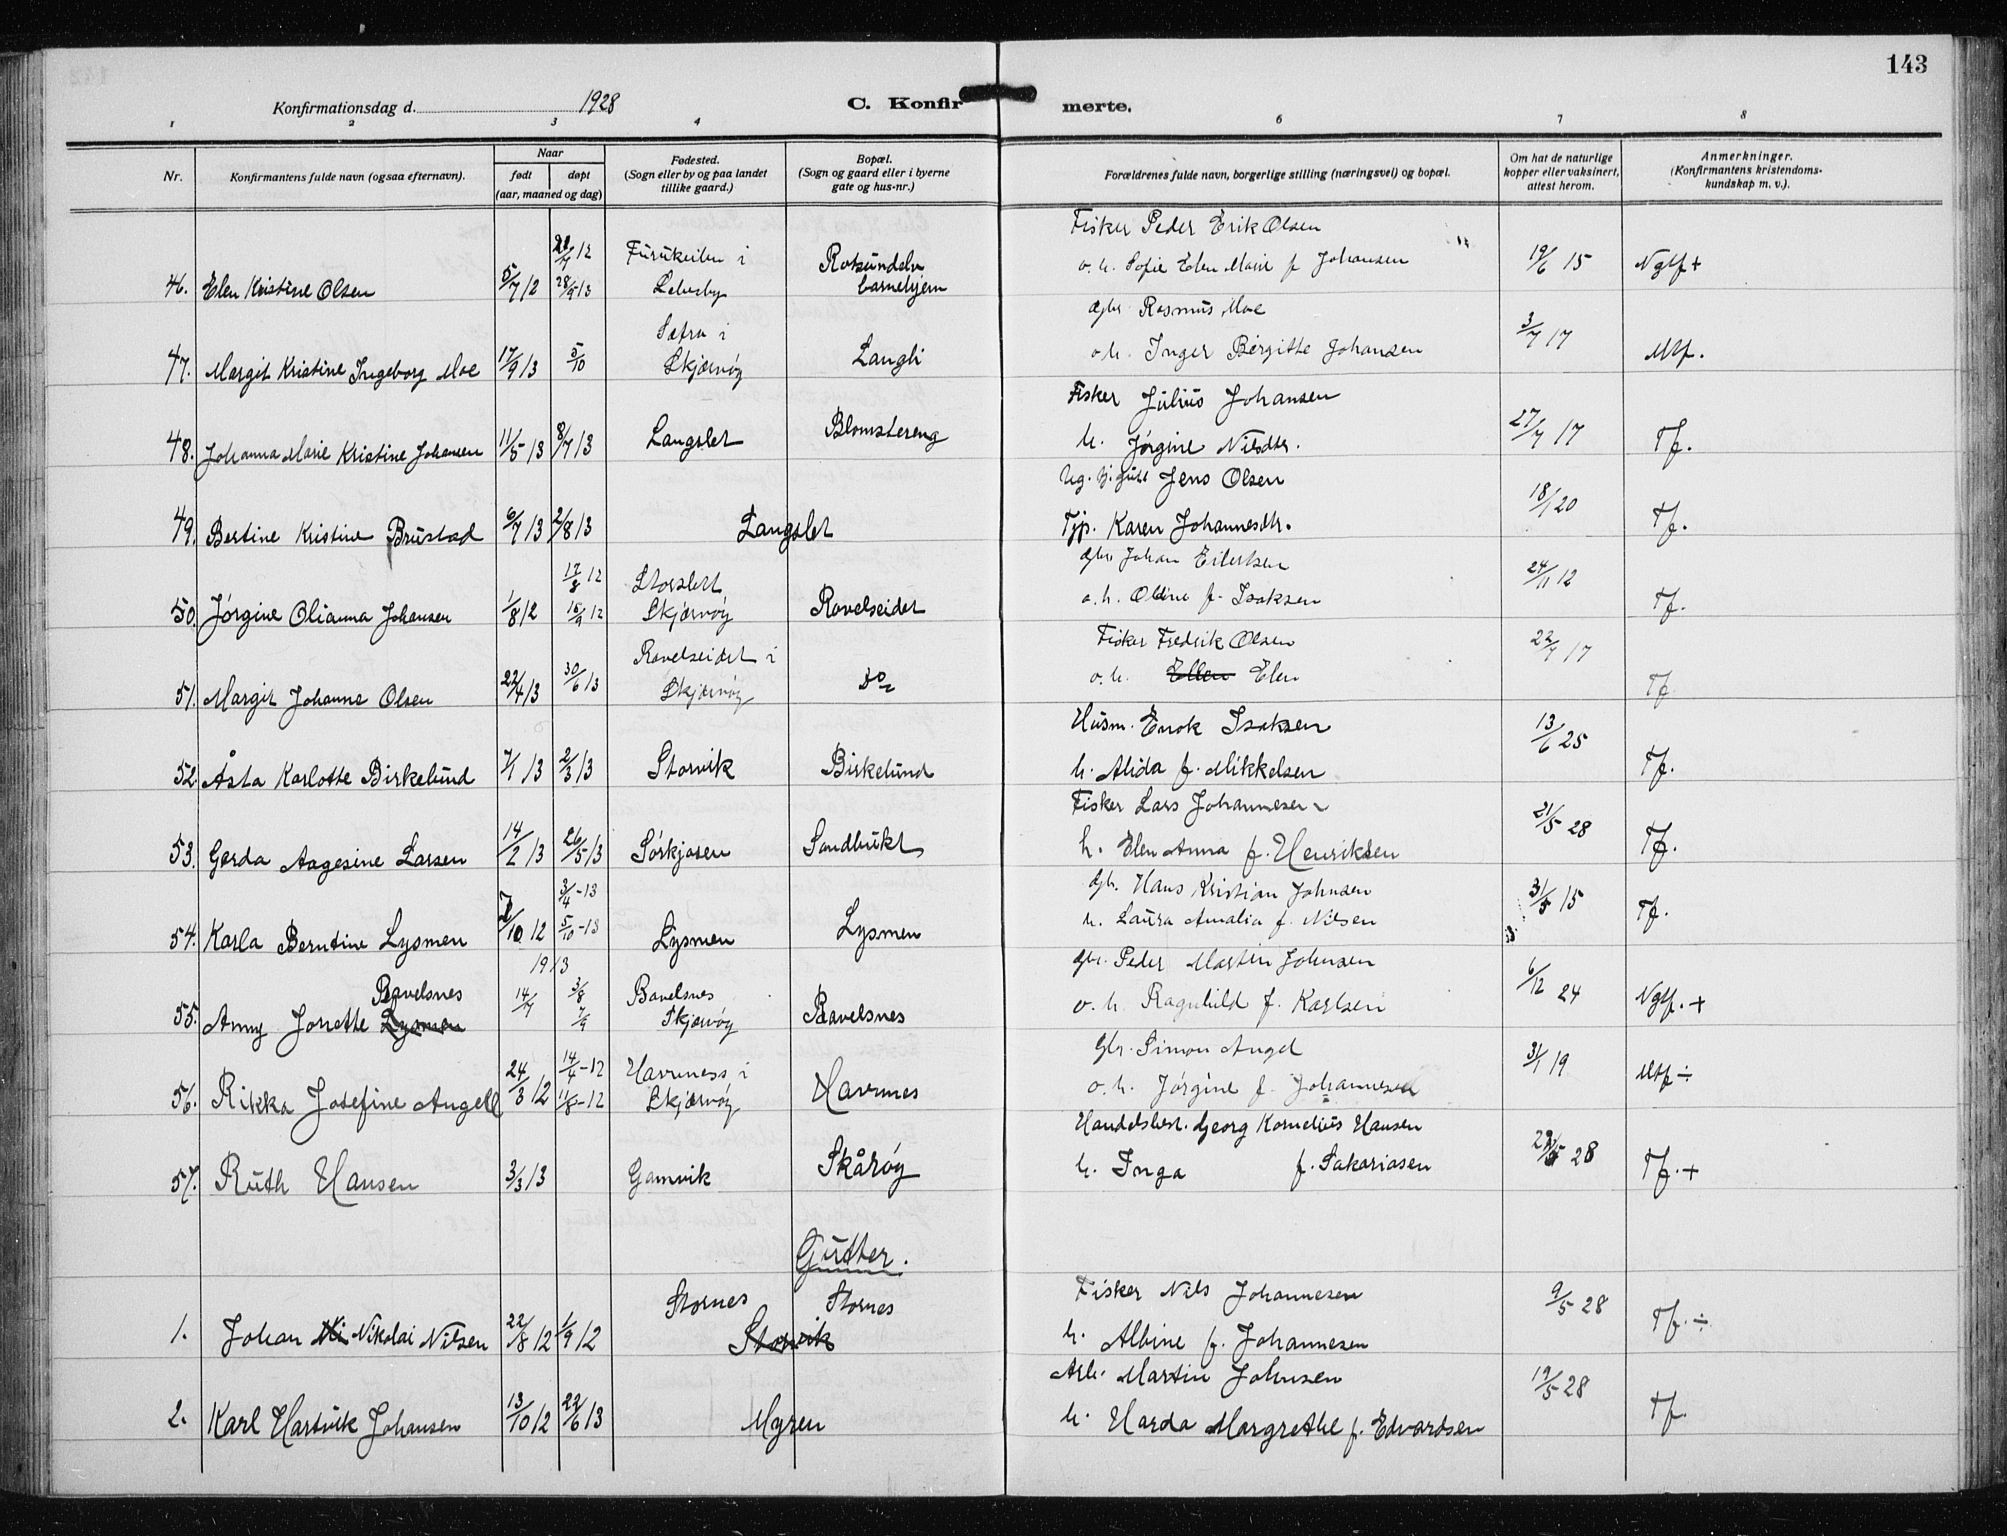 143
Konfirmationsdag d. 1928
C. Konfirmerte.
1 2 3 4 6 7 8
Nr.
Konfirmantens fulde navn (ogsaa efternavn).
Naar
født døpt
(aar, maaned og dag)
Fødested.
(Sogn eller by og paa landet
tillike gaard.)
Bopæl.
(Sogn og gaard eller i byerne
gate og hus-nr.)
Forældrenes fulde navn, borgerlige stilling (næringsvei) og bopæl.
Om hat de naturlige
kopper eller vaksinert,
attest herom.
Anmerkninger.
(Konfirmantens kristendoms-
kundskap m. v.).
Fisker Peder Erik Olsen
46. Elen Kristine Olsen 5/7 12 28/9 13 Lebesby barnehjem o. h. Sofie Elen Marie f. Johansen 19/6 15 Ngtf +
Gbr. Rasmus Moe
47. Margit Kristine Ingeborg Moe 17/9 13 5/10 Skjærvøy Langli o. h. Inger Bergitte Johansen 3/7 17 Mtf.
Fisker Julius Johansen
48. Johanna Marie Kristine Johansen 11/5 13 8/7 13 Langslet Blomstereng h. Jørgine Nilsdtr. 27/7 17 Tf.
Ug. Jens Olsen
49. Bertine Kristine Brustad 6/7 13 2/8 13 Langslet Tjp. Karen Johannesdtr. 18/1 20 Tf.
17/8 12 Storslett Gbr. Johan Eilertsen
50. Jørgine Olianna Johansen 1/8 12 15/9 12 Skjærvøy Ravelseidet o. h. Oldine f. Isaksen 24/11 12 Tf.
Ravelseidet i Fisker Fredrik Olsen
51. Margit Johanne Olsen 22/4 13 30/6 13 Skjærvøy Do o. h. Ellen Elen 22/7 17 Tf
Husm. Enok Isaksen
52. Åsta Karlotte Birkelund 7/1 13 2/3 13 Storvik Birkelund h. Alida f. Mikkelsen 13/6 25 Tf.
Fisker Lars Johannesen
53. Gerda Aagesine Larsen 14/2 13 26/5 13 Sørkjosen Sandbukt h. Elen Anna f. Henriksen 21/5 28 Tf.
3/4-13 Gb. Hans Kristian Johnsen
54. Karla Berntine Lysmen 7/10 12 5/10-13 Lysmen Lysmen h. Laura Amalia f. Nilsen 31/5 15 Tf.
1913
Ravelsnes 3/8 Ravelsnes Gbr. Peder Martin Johnsen
55. Anny Jonette Lysmen 14/7 7/9 Skjærvøy Ravelsnes o. h. Ragnhild f. Karlsen 6/12 24 Ngtf. +
14/4-12 Havnnes i Gbr. Simon Angel
56. Rikka Josefine Angell 24/3 12 11/8-12 Skjærvøy Havnnes o. h. Jørgine f. Johannesen 31/1 19 Mtf ÷
Handelsbest. Georg Kornelius Hansen
57. Ruth Hansen 3/3 13 Gamvik Skårøy h. Inga f. Sakariasen 28 Tf. +
Gutter.
Stornes Stornes Fisker Nils Johannesen
1. Johan Ni Nikolai Nilsen 22/8 12 1/9 12 Storvik h. Albine f. Johannesen 9/5 28 Tf. ÷
Arb. Martin Johnsen
2. Karl Hartvik Johansen 13/10 12 22/6 13 Myren h. Harda Margrethe f. Edvardsen 19/5 28 Tf.